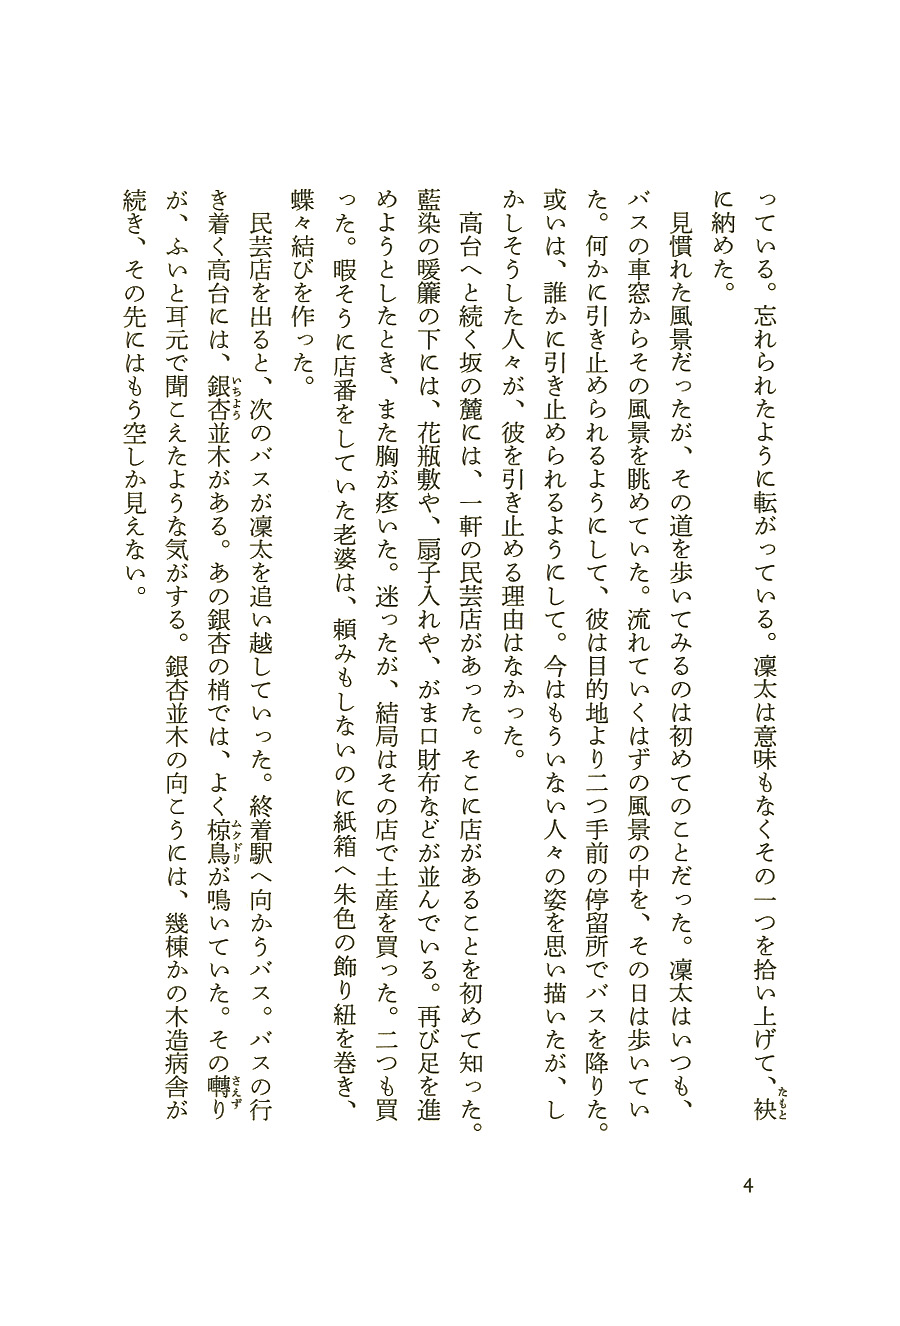 っている。忘れられたように転がっている。凜太は意味もなくその一つを拾い上げて、袂
に納めた。
　見慣れた風景だったが、その道を歩いてみるのは初めてのことだった。凜太はいつも、
バスの車窓からその風景を眺めていた。流れていくはずの風景の中を、その日は歩いてい
た。何かに引き止められるようにして、彼は目的地より二つ手前の停留所でバスを降りた。
或いは、誰かに引き止められるようにして。今はもういない人々の姿を思い描いたが、し
かしそうした人々が、彼を引き止める理由はなかった。
　高台へと続く坂の麓には、一軒の民芸店があった。そこに店があることを初めて知った。
藍染の暖簾の下には、花瓶敷や、扇子入れや、がま口財布などが並んでいる。再び足を進
めようとしたとき、また胸が疼いた。迷ったが、結局はその店で土産を買った。二つも買
った。暇そうに店番をしていた老婆は、頼みもしないのに紙箱へ朱色の飾り紐を巻き、
蝶々結びを作った。
　民芸店を出ると、次のバスが凜太を追い越していった。終着駅へ向かうバス。バスの行
き着く高台には、銀杏並木がある。あの銀杏の梢では、よく椋鳥が鳴いていた。その囀り
が、ふいと耳元で聞こえたような気がする。銀杏並木の向こうには、幾棟かの木造病舎が
続き、その先にはもう空しか見えない。
たもと
いちよう
ムクドリ
さえず
4